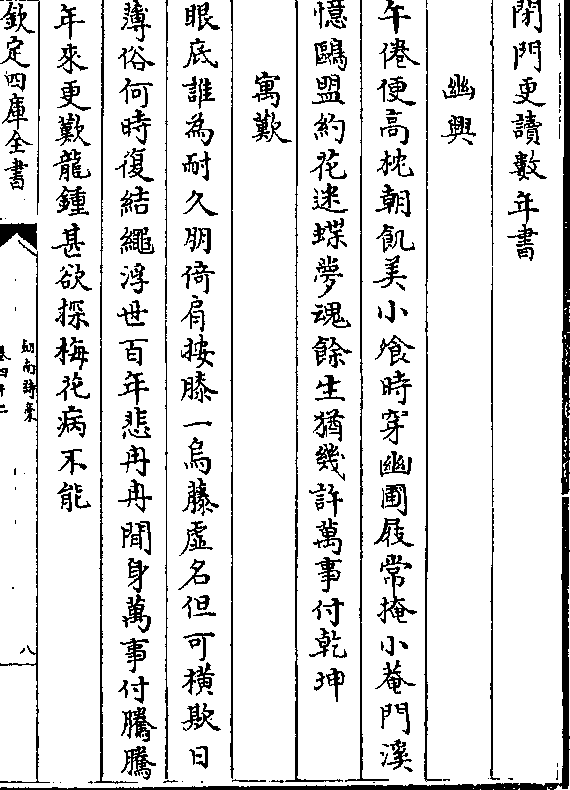 閉門更讀數年書
幽興
午倦便高枕朝飢美小飱時穿幽圃屐常掩小菴門溪
憶鷗盟約花迷蝶夢魂餘生猶幾許萬事付乾坤
寓歎
眼底誰為耐久朋倚肩按膝一烏藤虛名但可橫欺日
薄俗何時復結繩浮世百年悲冉冉閒身萬事付騰騰
年來更歎龍鍾甚欲探梅花病不能
欽定四庫全書
劍南詩稾
卷四十二
八